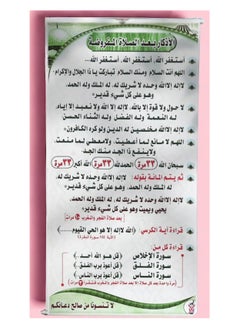 الأذكار بعد الصلاة المفروضة
أستغفر الله، أستغفر الله، أستغفر الله...
اللهم أنت السلام ومنك السلام تباركت يا ذا الجلال والإكرام
لا إله إلا الله وحده لا شريك له، له الملك وله الحمد
وهو على كل شيء قدير
لا حول ولا قوة إلا بالله، لا إله إلا الله ولا نعبد إلا إياه،
له النعمة وله الفضل وله الثناء الحسن
لا إله إلا الله مخلصين له الدين ولو كره الكافرون
اللهم لا مانع لما أعطيت، ولا معطي لما منعت،
ولا ينفع ذا الجد منك الجد
سبحان الله ٣٣ مرة الحمد لله ٣٣ مرة الله أكبر ٣٣ مرة
ثم يتم المائة بقوله: لا إله إلا الله وحده لا شريك له،
له الملك وله الحمد وهو على كل شيء قدير
لا إله إلا الله وحده لا شريك له، له الملك وله الحمد،
يحيي ويميت وهو على كل شيء قدير
بعد صلاة الفجر والمغرب ١٠ مرات
قراءة آية الكرسي (الله لا إله إلا هو الحي القيوم...)
قراءة كل من:
سورة الإخلاص (قل هو الله أحد..)
سورة الفلق (قل أعوذ برب الفلق..)
سورة الناس (قل أعوذ برب الناس..)
لا تنسونا من صالح دعائكم